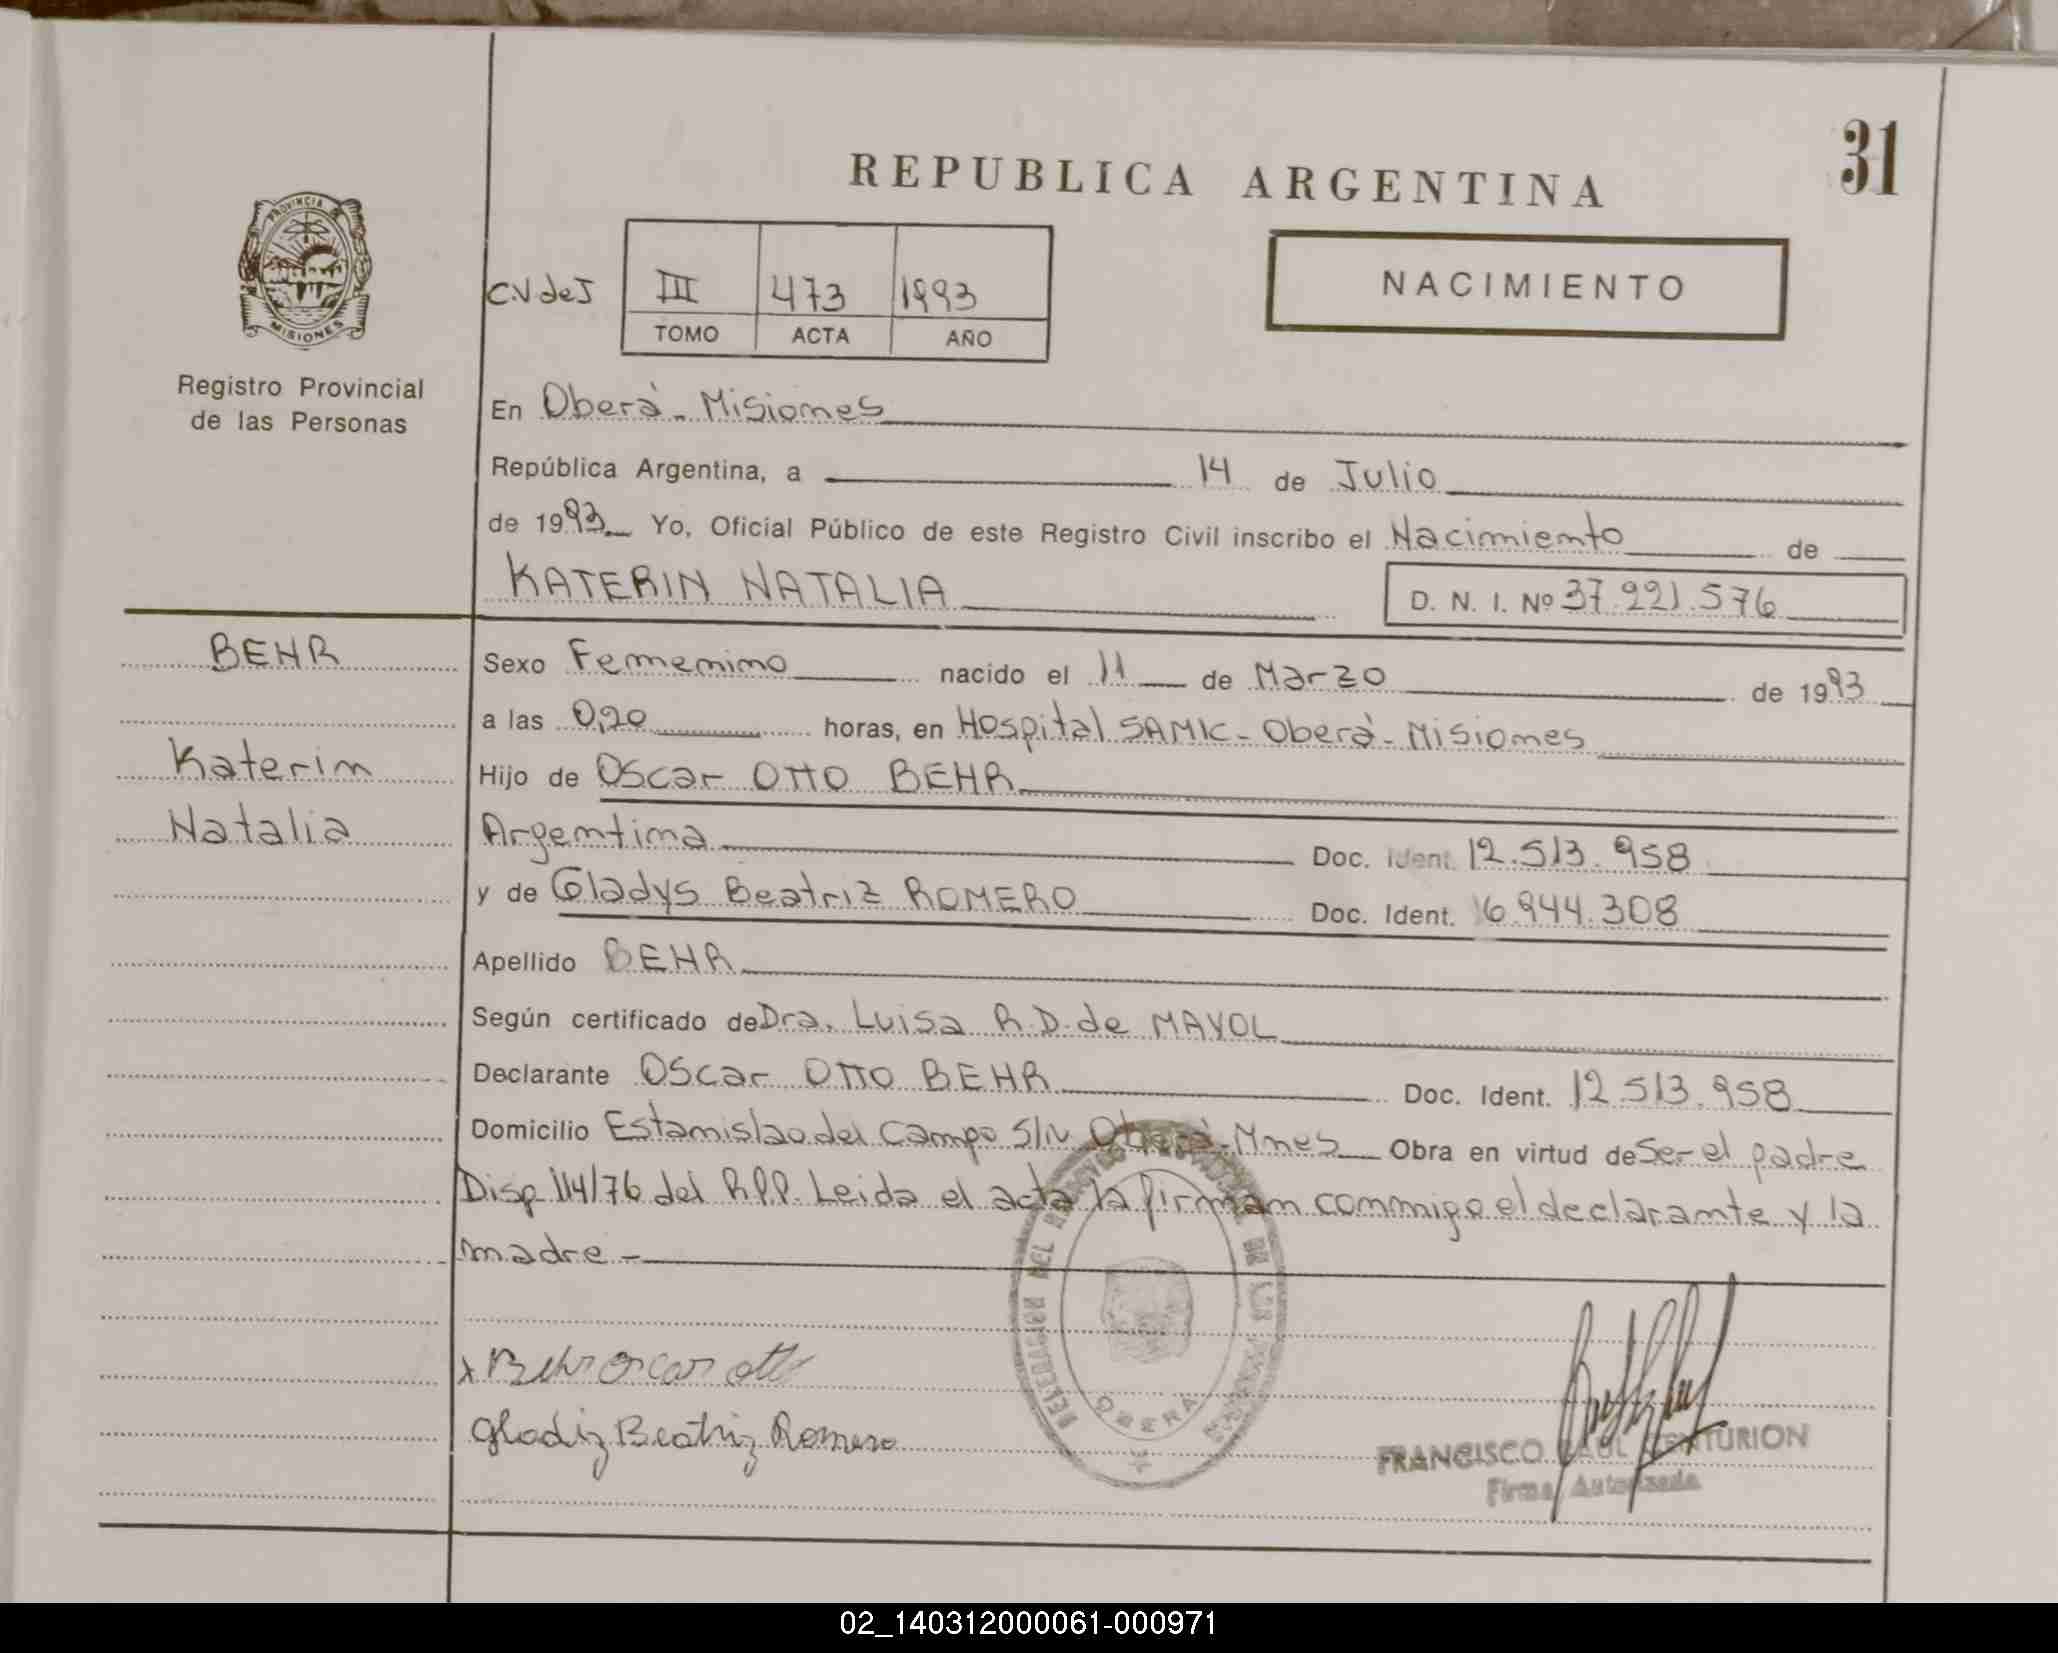 31
REPUBLICA ARGENTINA
PROVINCIA DE
MISIONES
Registro Provincial
de las Personas
C.V de J
III 473 1993
TOMO ACTA AÑO
NACIMIENTO
En Oberá - Misiones
República Argentina, a 14 de Julio
de 1993 Yo, Oficial Público de este Registro Civil inscribo el Nacimiento de
KATERIN NATALIA
D. N. I. Nº 37.221.576
BEHR
Katerin
Natalia
Sexo Femenino nacido el 11 de Marzo de 1993
a las 0,20 horas, en Hospital SAMIC - Oberá - Misiones
Hijo de Oscar Otto BEHR
Argentina Doc. Ident. 12.513.958
y de Gladys Beatriz ROMERO Doc. Ident. 16.944.308
Apellido BEHR
Según certificado de Dra. Luisa R.D. de MAYOL
Declarante Oscar Otto BEHR Doc. Ident. 12.513.958
Domicilio Estanislao del Campo S/N Oberá - Mnes Obra en virtud de Ser el padre
Disp. 114/76 del R.P.P. Leida el acta la firman conmigo el declarante y la
madre -
x Behr Oscar Otto
Gladiz Beatriz Romero
DEL REGISTRO PROVINCIAL DE LAS PERSONAS
OBERA
FRANCISCO RAUL CENTURION
Firma Autorizada
02_140312000061-000971